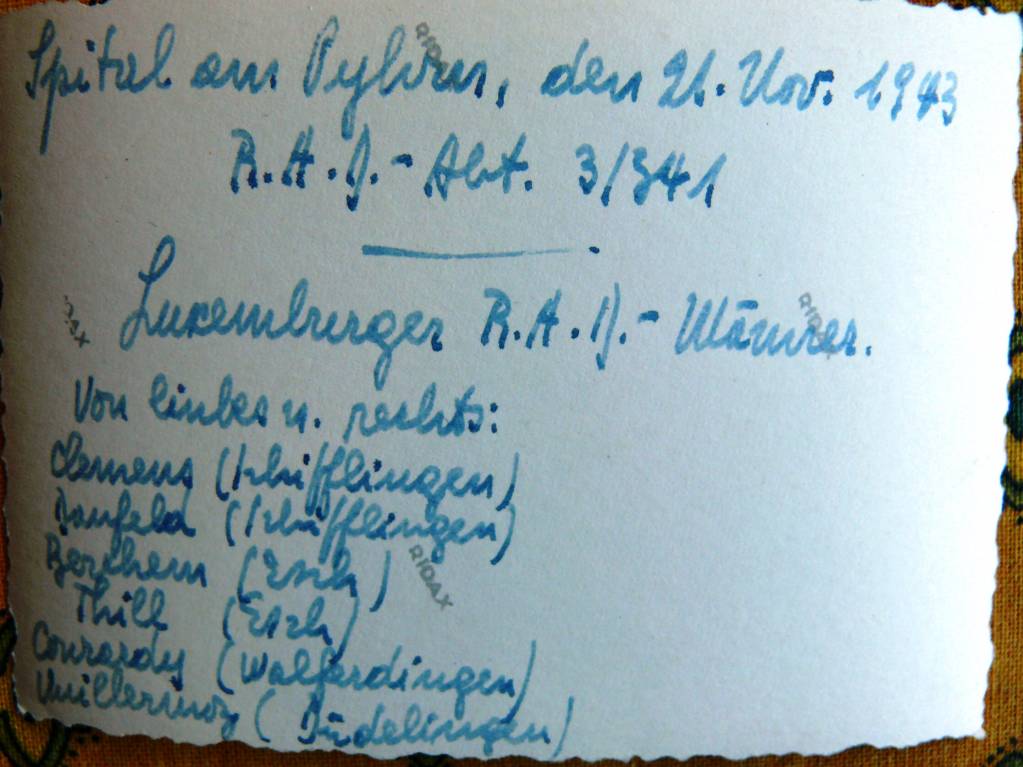 Spital am Pyhrn, den 21. Nov. 1943
R.A.D.- Abt. 3/341
Luxemburger R.A.D.- Männer.
Von links n. rechts:
Clemens (Schifflingen)
(Schifflingen)
Berchem (Esch)
Thill (Esch)
Conrardy (Walferdingen)
Vuillermoz (Düdelingen)
RIDAX
RIDAX
RIDAX